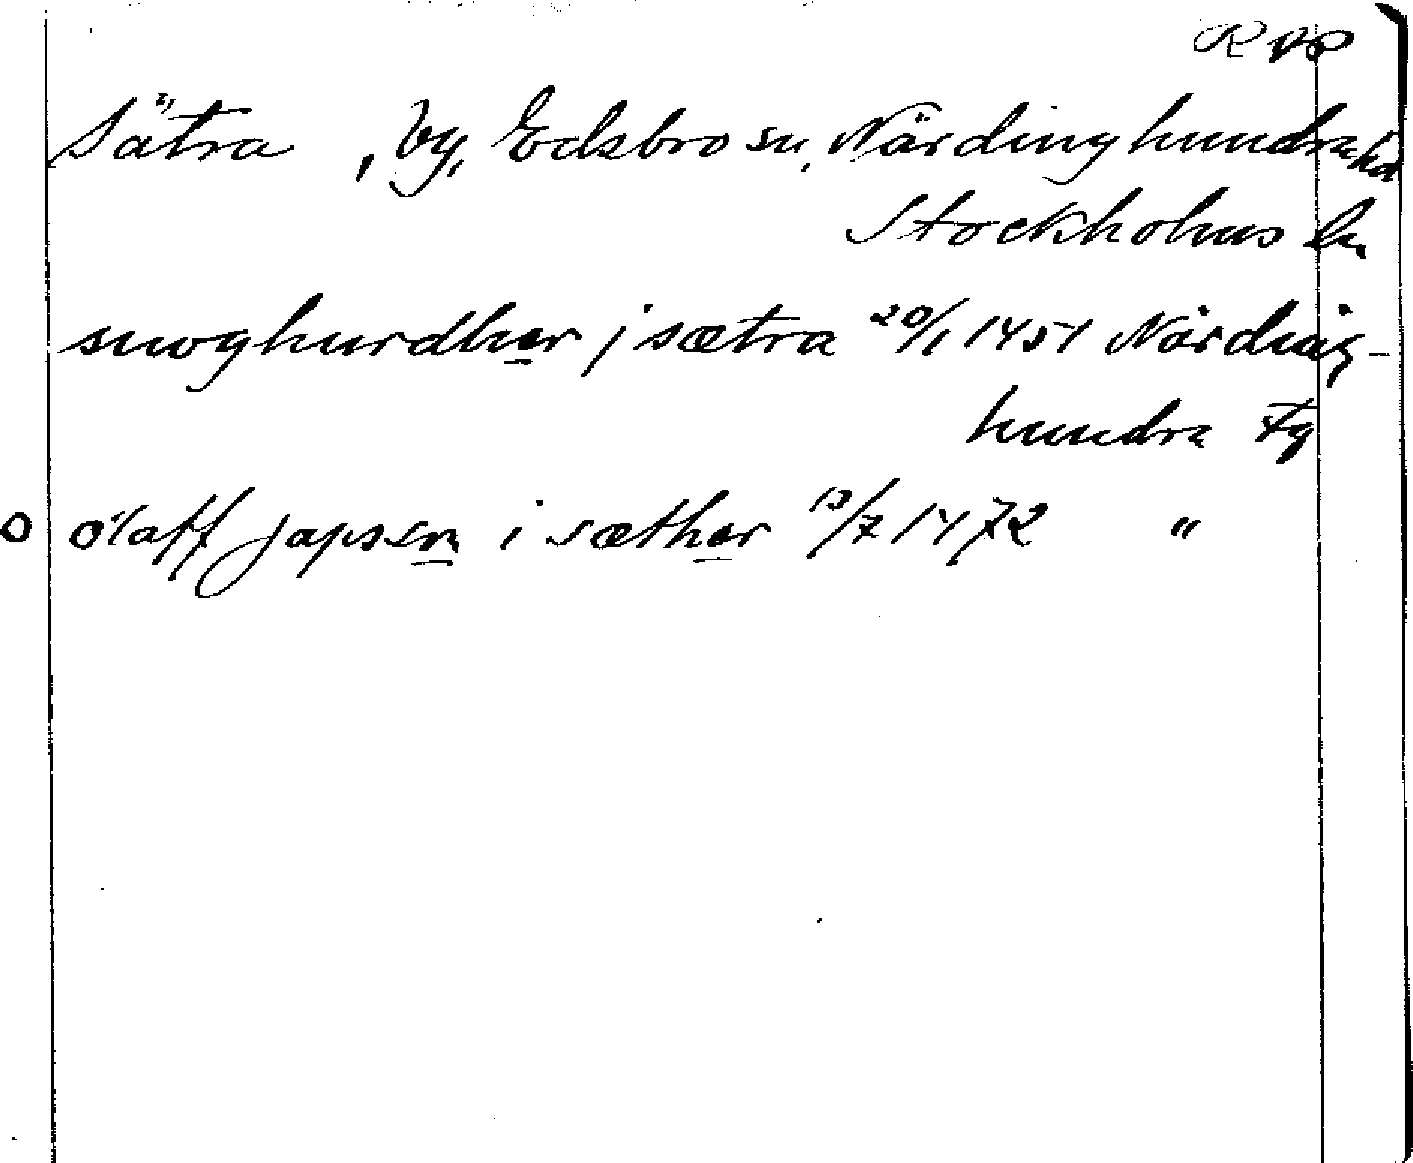 Sätra, by, Edsbro sn, Närdinghundra hd
Stockholms ln
snoghurdher j sætra 20/1 1451 Närding-
hundra Fg
olaff japsen i sæther 13/7 1472 "